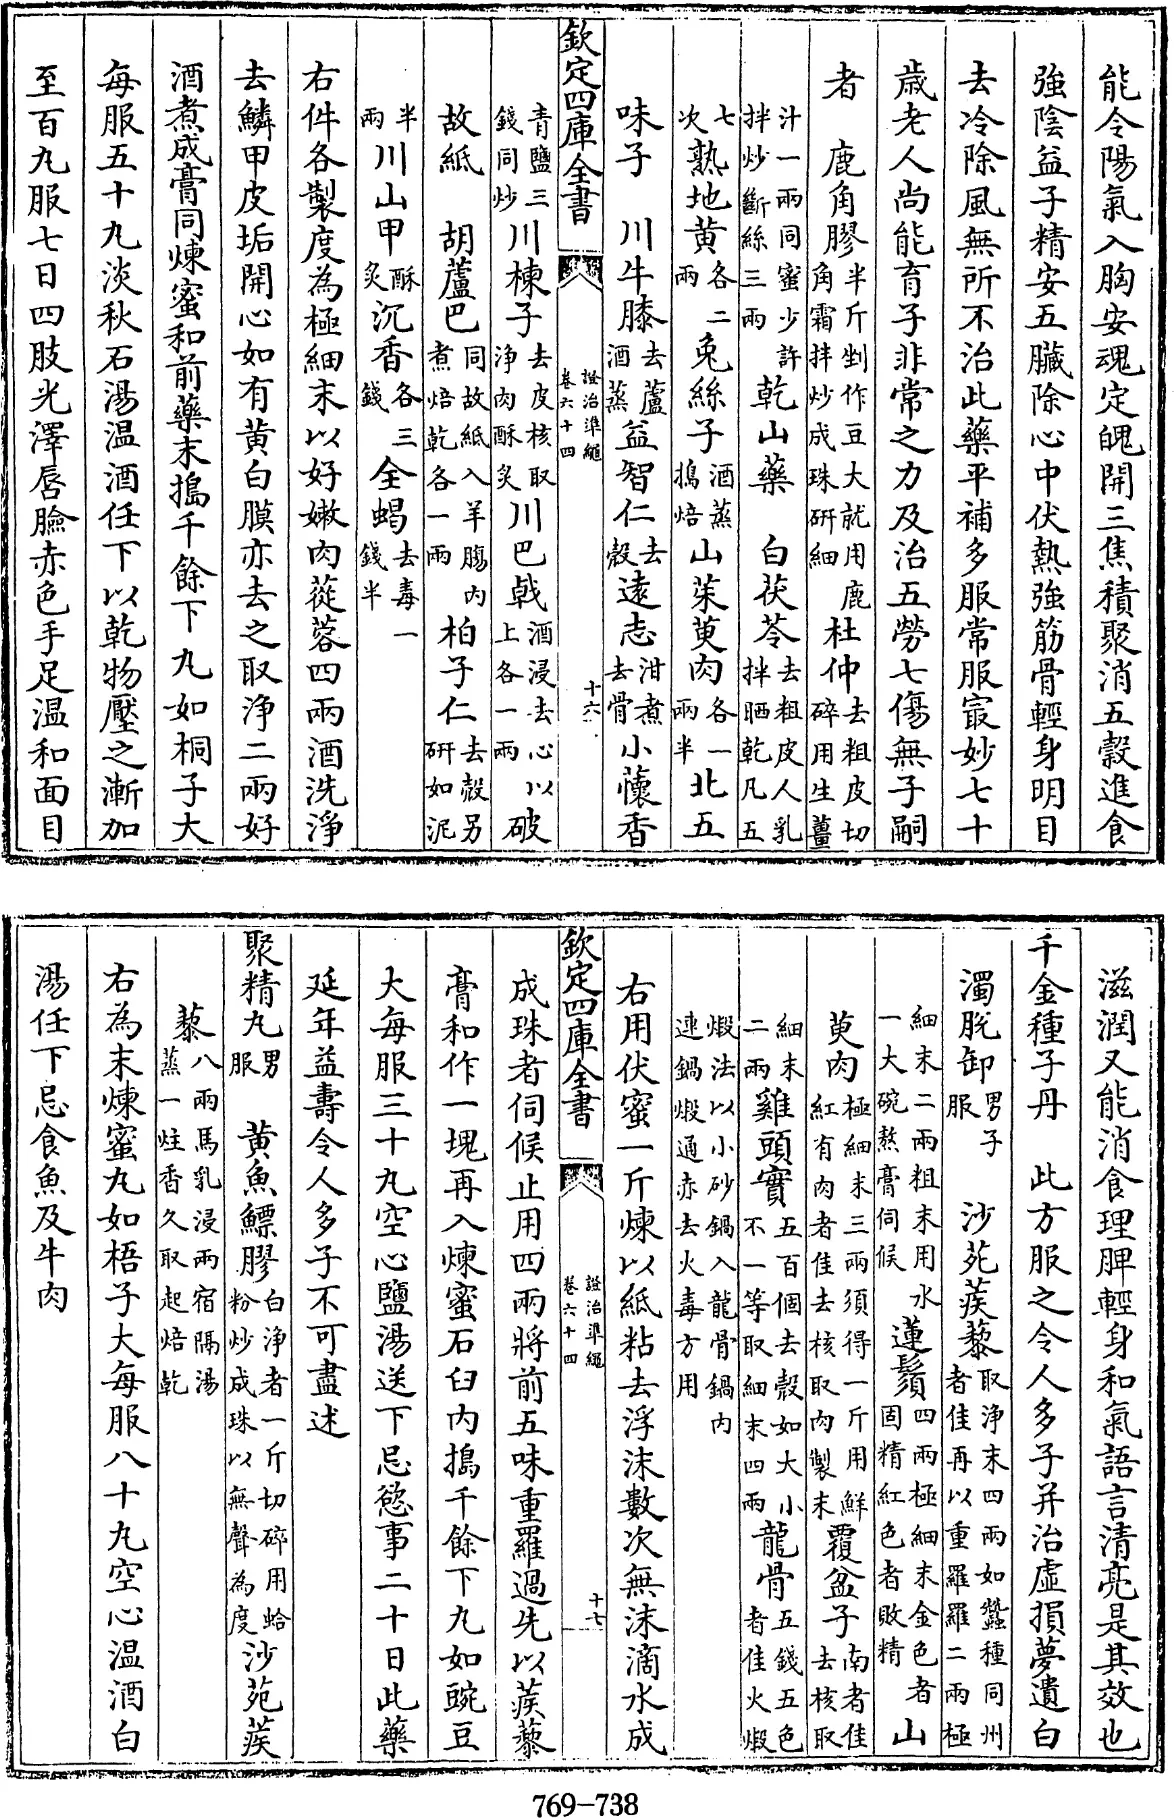 能令陽氣入胸安魂定魄開三焦積聚消五穀進食
強陰益子精安五臟除心中伏熱強筋骨輕身明目
去冷除風無所不治此藥平補多服常服㝡妙七十
歲老人尚能育子非常之力及治五勞七傷無子嗣
者　鹿角膠半斤剉作豆大就用鹿角霜拌炒成珠研細杜仲去粗皮切碎用生薑
汁一兩同蜜少許拌炒斷絲三兩乾山藥　白茯苓去粗皮人乳拌晒乾凡五
七次熟地黃各二兩兔絲子酒蒸搗焙山茱萸肉各一兩半北五
味子　川牛膝去蘆酒蒸益智仁去殻遠志泔煮去骨小蘹香
欽定四庫全書
證治準繩
卷六十四
十六
青鹽三錢同炒川楝子去皮核取淨肉酥炙川巴戟酒浸去心以上各一兩破
故紙　胡蘆巴同故紙入羊腸內煮焙乾各一兩柏子仁去殻另研如泥
半兩川山甲酥炙沉香各三錢全蝎去毒一錢半
右件各製度為極細末以好嫩肉蓯蓉四兩酒洗淨
去鱗甲皮垢開心如有黃白膜亦去之取淨二兩好
酒煮成膏同煉蜜和前藥末搗千餘下丸如桐子大
每服五十丸淡秋石湯温酒任下以乾物壓之漸加
至百丸服七日四肢光澤唇臉赤色手足温和面目
滋潤又能消食理脾輕身和氣語言清亮是其效也
千金種子丹　此方服之令人多子并治虛損夢遺白
濁脫卸男子服　沙苑蒺藜取淨末四兩如蠶種同州者佳再以重羅羅二兩極
細末二兩粗末用水一大碗熬膏伺候蓮鬚四兩極細末金色者固精紅色者敗精山
萸肉極細末三兩須得一斤用鮮紅有肉者佳去核取肉製末覆盆子南者佳去核取
細末二兩雞頭實五百個去殻如大小不一等取細末四兩龍骨五錢五色者佳火煅
煅法以小砂鍋入龍骨鍋內連鍋煅通赤去火毒方用
右用伏蜜一斤煉以紙粘去浮沫數次無沫滴水成
欽定四庫全書
證治準繩
卷六十四
十七
成珠者伺候止用四兩將前五味重羅過先以蒺藜
膏和作一塊再入煉蜜石臼內搗千餘下丸如豌豆
大每服三十丸空心鹽湯送下忌慾事二十日此藥
延年益壽令人多子不可盡述
聚精丸男服　黃魚鰾膠白淨者一斤切碎用蛤粉炒成珠以無聲為度沙苑蒺
藜八兩馬乳浸兩宿隔湯蒸一炷香久取起焙乾
右為末煉蜜丸如梧子大每服八十丸空心温酒白
湯任下忌食魚及牛肉
769-738